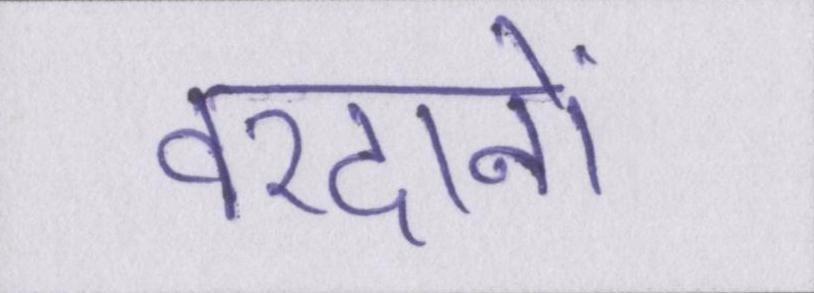 वरदानों